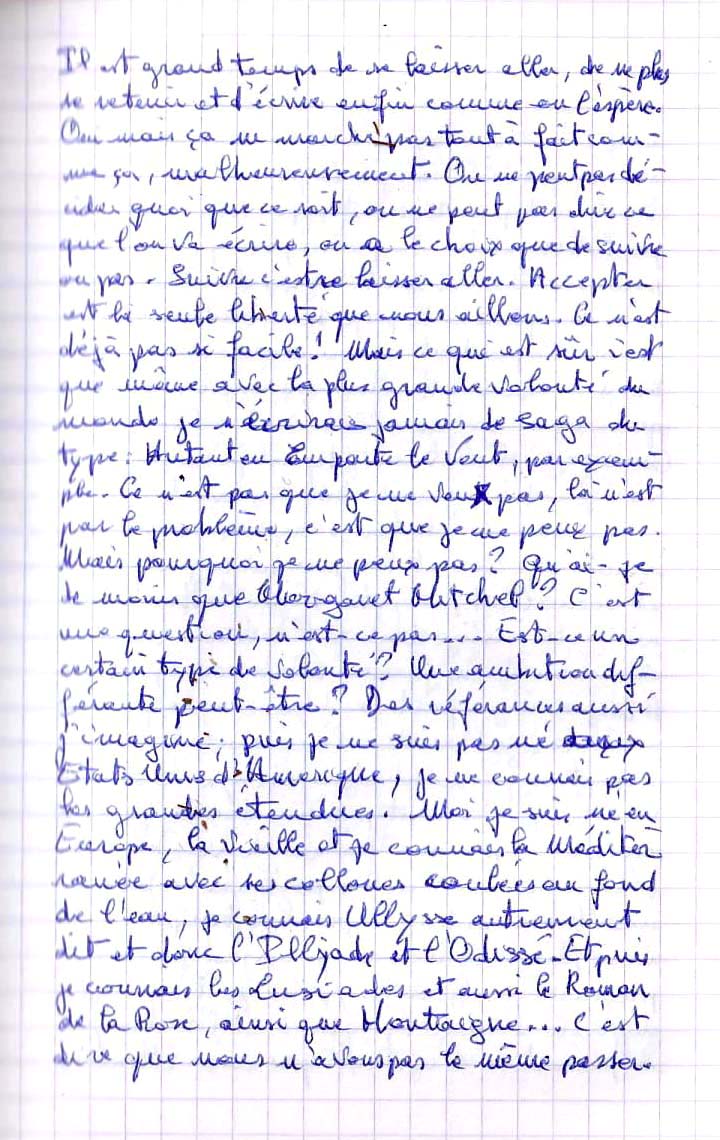 Il est grand temps de se laisser aller, de ne plus
se retenir et d'écrire enfin comme on l'espère.
Oui mais ça ne marche pas tout à fait com-
me ça, malheureusement. On ne peut pas dé-
cider quoi que ce soit, on ne peut pas dire ce
que l'on va écrire, on a le choix que de suivre
ou pas. Suivre c'est se laisser aller. Accepter
est la seule liberté que nous aillons. Ce n'est
déjà pas si facile! Mais ce qui est sûr c'est
que même avec la plus grande volonté du
monde je n'écrirais jamais de saga du
type: Autant en Emporte le Vent, par exem-
ple. Ce n'est pas que je ne veux pas, là n'est
pas le problème, c'est que je ne peux pas.
Mais pourquoi je ne peux pas? Qu'ai-je
de moins que Margaret Mitchel? C'est
une question, n'est-ce pas... Est-ce un
certain type de volonté? Une ambition dif-
férente peut-être? Des référances aussi
j'imagine; puis je ne suis pas né aux
Etats Unis d'Amérique, je ne connais pas
les grandes étendues. Moi je suis né en
Europe, la vieille et je connais la Méditer
ranée avec ses collones coulées au fond
de l'eau, je connais Ullysse autrement
dit et donc l'Illyade et l'Odissé. Et puis
je connais les Lusiades et aussi le Roman
de la Rose, ainsi que Montaigne... C'est
dire que nous n'avons pas le même passer.